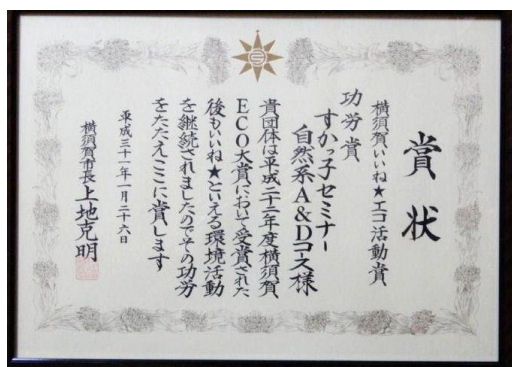 賞状
横須賀いいね★エコ活動賞
功労賞
すかっ子セミナー
自然系A&Dコース様
貴団体は平成二十二年度横須賀
ECO大賞において受賞された
後もいいね★といえる環境活動
を継続されましたのでその功労
をたたえここに賞します
平成三十一年一月二十六日
横須賀市長 上地克明